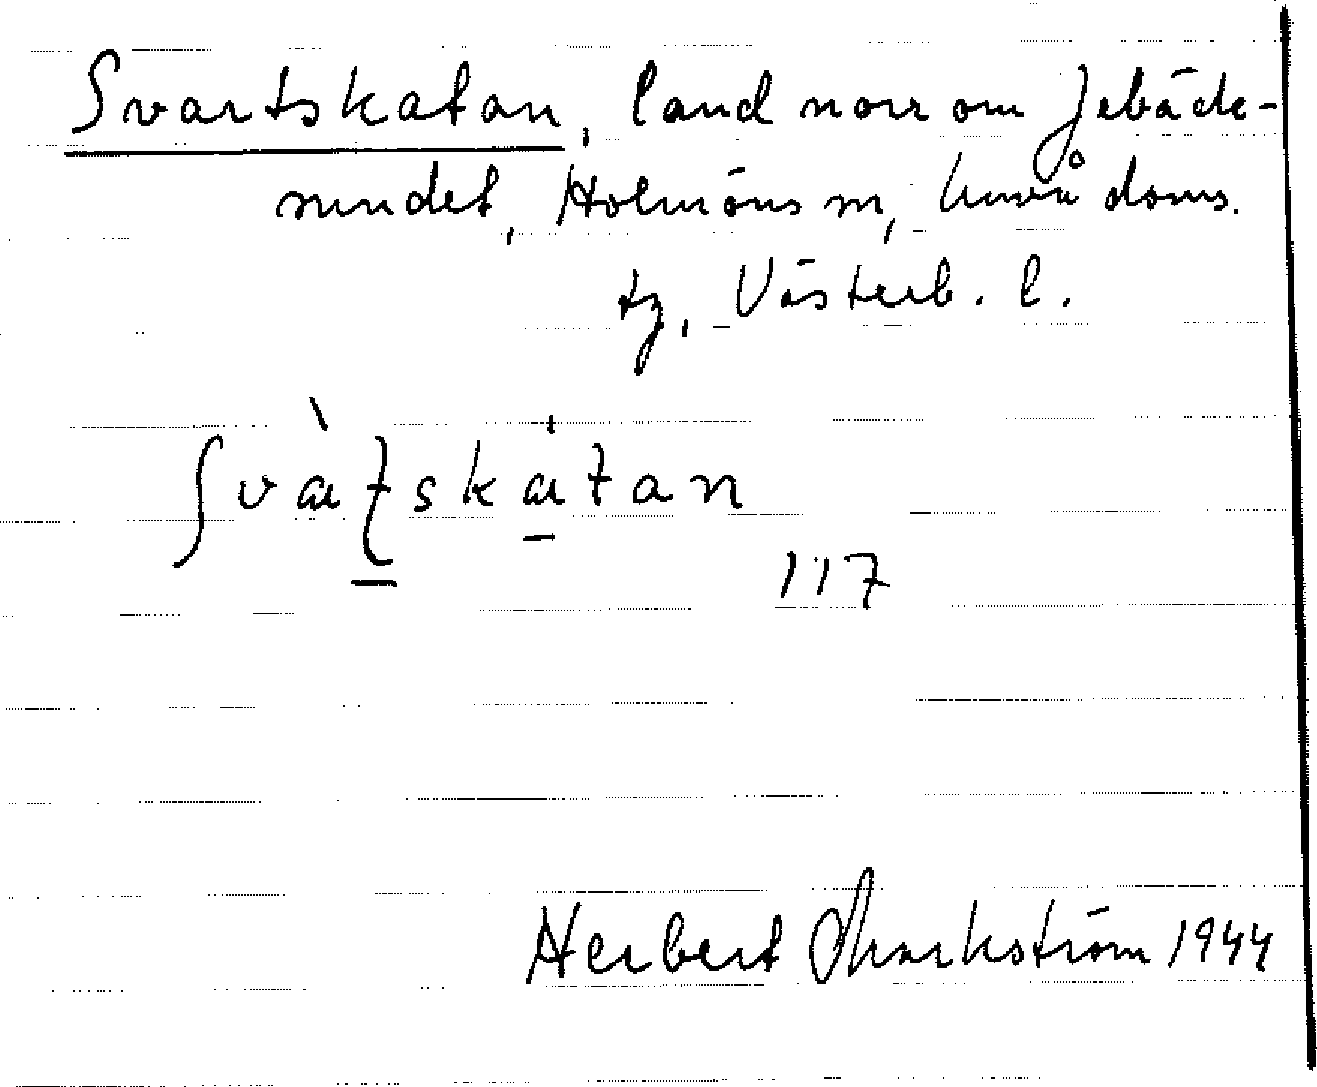 Svartskatan, land norr om Jebäck-
sundet, Holmöns sn, Umeå doms.
tg, Västerb. l.
117
Herbert Markström 1944